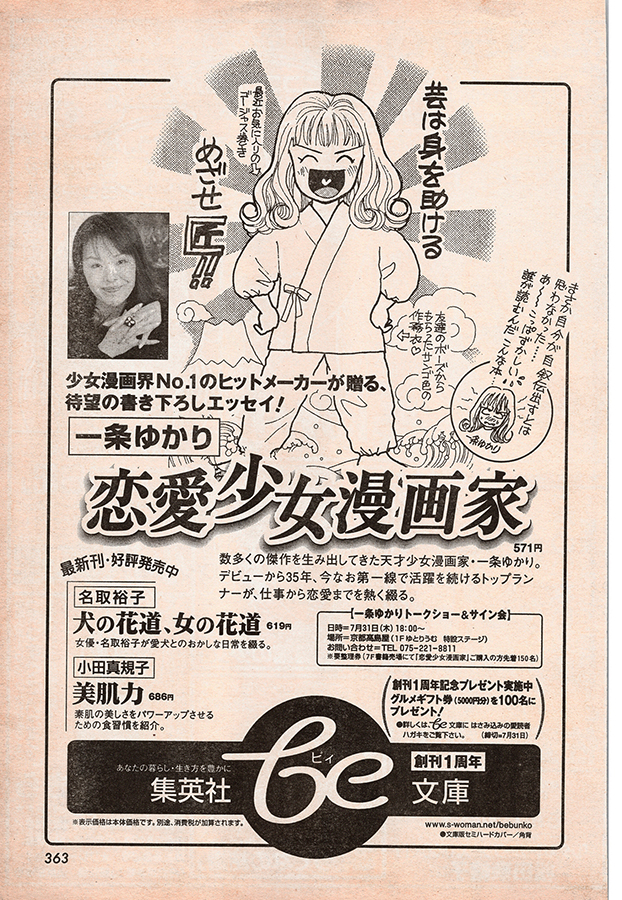 芸は身を助ける
最近お気に入りの
ゴージャス巻き
めざせ「匠」!!
まさか自分が自叙伝出すとは
思わなかった……
あ〜〜こっぱずかしい
誰が読むんだこんな本…
友達のボーズから
もらったサンゴ色の
作務衣♡
©一条ゆかり
少女漫画界No.1のヒットメーカーが贈る、
待望の書き下ろしエッセイ!
一条ゆかり
恋愛少女漫画家
571円
数多くの傑作を生み出してきた天才少女漫画家・一条ゆかり。
デビューから35年、今なお第一線で活躍を続けるトップラン
ナーが、仕事から恋愛までを熱く綴る。
最新刊・好評発売中
名取裕子
犬の花道、女の花道 619円
女優・名取裕子が愛犬とのおかしな日常を綴る。
小田真規子
美肌力 686円
素肌の美しさをパワーアップさせる
ための食習慣を紹介。
【一条ゆかりトークショー&サイン会】
日時=7月31日(木)18:00〜
場所=京都高島屋(1Fゆとりうむ 特設ステージ)
お問い合わせ=TEL 075-221-8811
※要整理券(7F書籍売場にて「恋愛少女漫画家」ご購入の方先着150名)
創刊1周年記念プレゼント実施中
グルメギフト券(5000円分)を100名に
プレゼント!
●詳しくは、be文庫にはさみ込みの愛読者
ハガキをご覧下さい。 (締切=7月31日)
あなたの暮らし・生き方を豊かに
集英社
be
ビィ
創刊1周年
文庫
※表示価格は本体価格です。別途、消費税が加算されます。
www.s-woman.net/bebunko
●文庫版セミハードカバー/角背
363